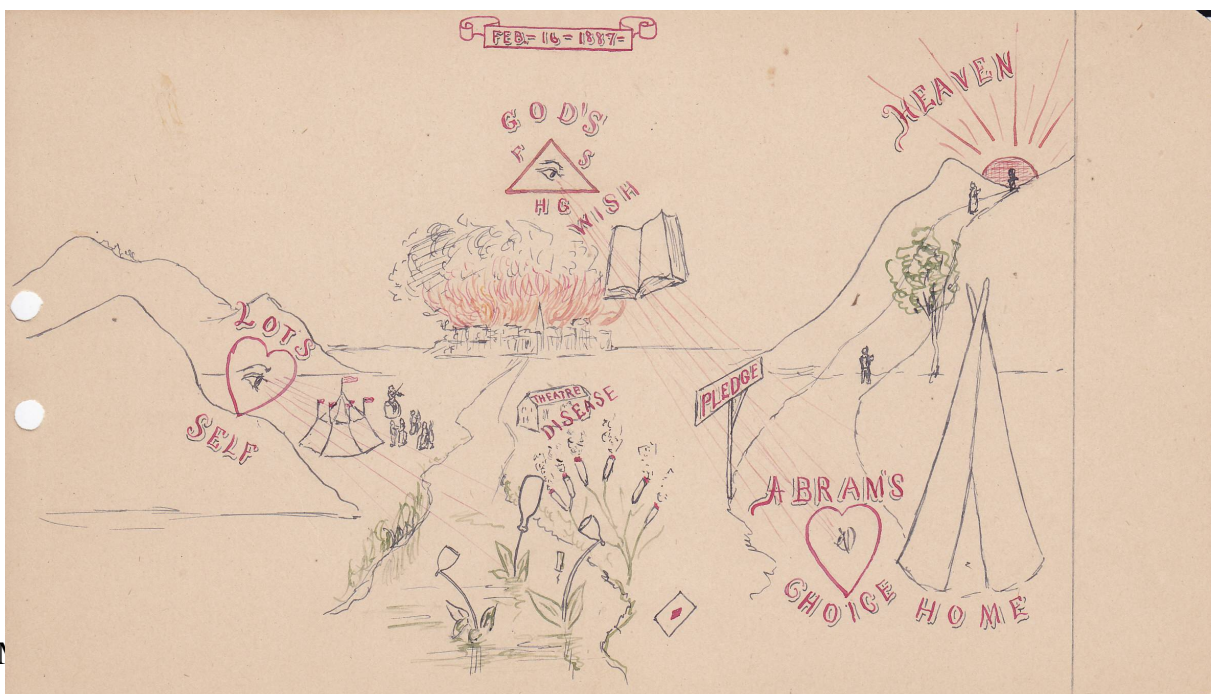 FEB.= 16 = 1887=
HEAVEN
GOD'S
F S
H G
WISH
LOT'S
SELF
THEATRE
DISEASE
PLEDGE
ABRAM'S
CHOICE
HOME